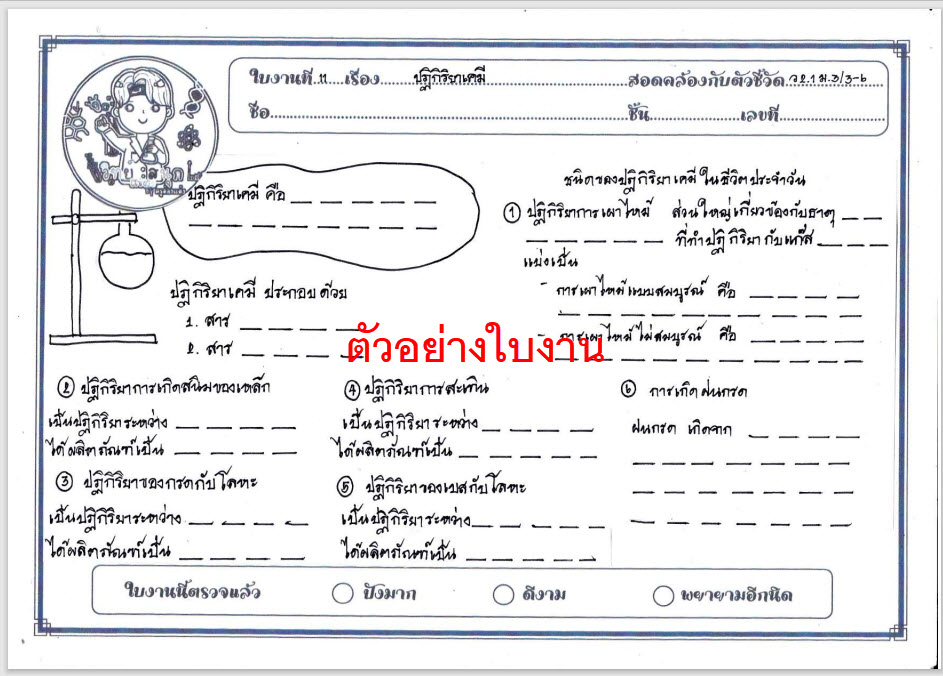 ใบงานที่ 11 เรื่อง ปฏิกิริยาเคมี สอดคล้องกับตัวชี้วัด ว 2.1 ม.3/3-6
ชื่อ ชั้น เลขที่
ปฏิกิริยาเคมี คือ
ปฏิกิริยาเคมี ประกอบด้วย
1. สาร
2. สาร
ชนิดของปฏิกิริยาเคมีในชีวิตประจำวัน
① ปฏิกิริยาการเผาไหม้ ส่วนใหญ่เกี่ยวข้องกับธาตุ
ที่ทำปฏิกิริยากับแก๊ส
แบ่งเป็น
- การเผาไหม้แบบสมบูรณ์ คือ
- การเผาไหม้ไม่สมบูรณ์ คือ
ตัวอย่างใบงาน
② ปฏิกิริยาการเกิดสนิมของเหล็ก
เป็นปฏิกิริยาระหว่าง
ได้ผลิตภัณฑ์เป็น
③ ปฏิกิริยาของกรดกับโลหะ
เป็นปฏิกิริยาระหว่าง
ได้ผลิตภัณฑ์เป็น
④ ปฏิกิริยาการสะเทิน
เป็นปฏิกิริยาระหว่าง
ได้ผลิตภัณฑ์เป็น
⑤ ปฏิกิริยาของเบสกับโลหะ
เป็นปฏิกิริยาระหว่าง
ได้ผลิตภัณฑ์เป็น
⑥ การเกิดฝนกรด
ฝนกรด เกิดจาก
ใบงานนี้ตรวจแล้ว ปังมาก ดีงาม พยายามอีกนิด